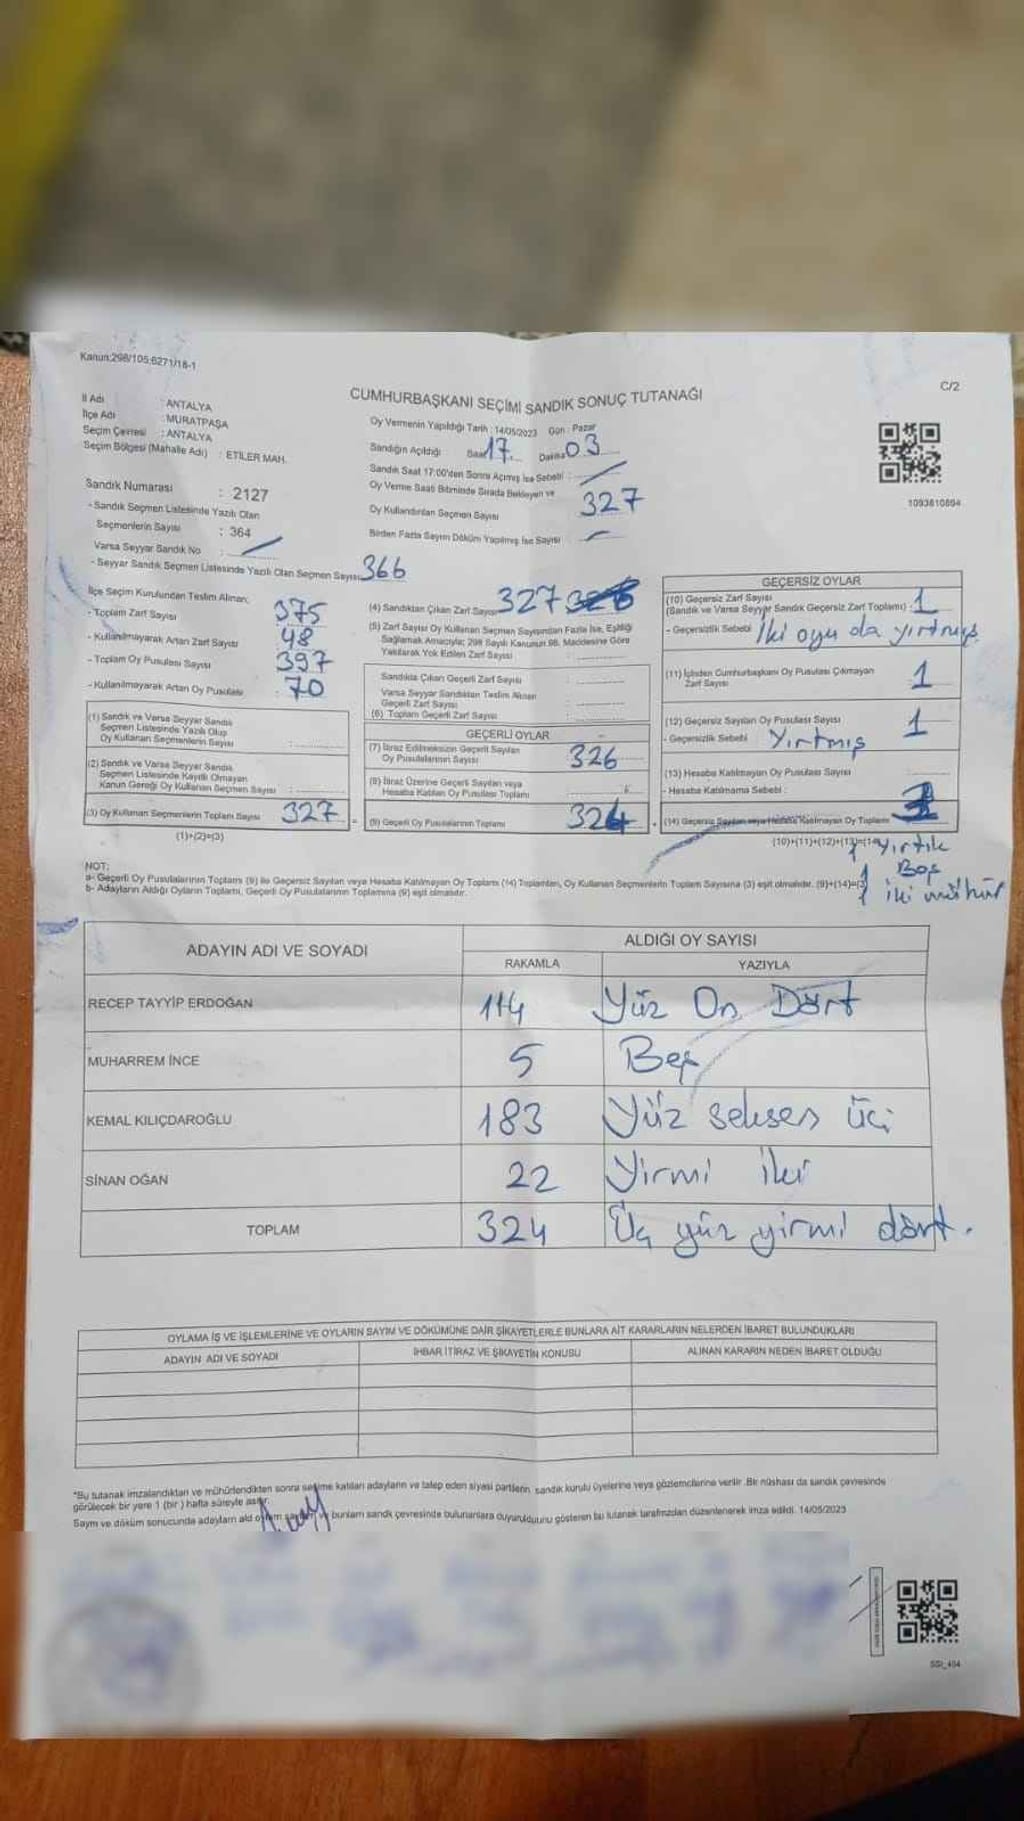 Kanun:298/105:6271/16-1
C/2
CUMHURBAŞKANI SEÇİMİ SANDIK SONUÇ TUTANAĞI
İl Adı : ANTALYA
İlçe Adı : MURATPAŞA
Seçim Çevresi : ANTALYA
Seçim Bölgesi (Mahalle Adı) : ETİLER MAH.
Oy Vermenin Yapıldığı Tarih : 14/05/2023 Gün : Pazar
Sandığın Açıldığı Saat 17 Dakika 03
Sandık Saat 17:00'den Sonra Açımış İse Sebebi :
Oy Verme Saati Bitiminde Sırada Bekleyen ve
Oy Kullandırılan Seçmen Sayısı 327
Birden Fazla Sayım Döküm Yapılmış İse Sayısı :
1093610894
Sandık Numarası : 2127
- Sandık Seçmen Listesinde Yazılı Olan
Seçmenlerin Sayısı : 364
Varsa Seyyar Sandık No :
- Seyyar Sandık Seçmen Listesinde Yazılı Olan Seçmen Sayısı 366
İlçe Seçim Kurulundan Teslim Alınan;
- Toplam Zarf Sayısı 375
- Kullanılmayarak Artan Zarf Sayısı 48
- Toplam Oy Pusulası Sayısı 397
- Kullanılmayarak Artan Oy Pusulası 70
(1) Sandık ve Varsa Seyyar Sandık
Seçmen Listesinde Yazılı Olup
Oy Kullanan Seçmenlerin Sayısı :
(2) Sandık ve Varsa Seyyar Sandık
Seçmen Listesinde Kayıtlı Olmayan
Kanun Gereği Oy Kullanan Seçmen Sayısı :
(3) Oy Kullanan Seçmenlerin Toplam Sayısı 327
(1)+(2)=(3)
(4) Sandıktan Çıkan Zarf Sayısı 327
(5) Zarf Sayısı Oy Kullanan Seçmen Sayısından Fazla İse, Eşitliği
Sağlamak Amacıyla; 298 Sayılı Kanunun 98. Maddesine Göre
Yakılarak Yok Edilen Zarf Sayısı :
Sandıkta Çıkan Geçerli Zarf Sayısı :
Varsa Seyyar Sandıktan Teslim Alınan
Geçerli Zarf Sayısı :
(6) Toplam Geçerli Zarf Sayısı :
GEÇERLİ OYLAR
(7) İtiraz Edilmeksizin Geçerli Sayılan
Oy Pusulalarının Sayısı 326
(8) İtiraz Üzerine Geçerli Sayılan veya
Hesaba Katılan Oy Pusulası Toplamı
(9) Geçerli Oy Pusulalarının Toplamı 324
GEÇERSİZ OYLAR
(10) Geçersiz Zarf Sayısı
(Sandık ve Varsa Seyyar Sandık Geçersiz Zarf Toplamı) : 1
- Geçersizlik Sebebi İki oyu da yırtmış
(11) İçinden Cumhurbaşkanı Oy Pusulası Çıkmayan
Zarf Sayısı 1
(12) Geçersiz Sayılan Oy Pusulası Sayısı 1
- Geçersizlik Sebebi Yırtmış
(13) Hesaba Katılmayan Oy Pusulası Sayısı
- Hesaba Katılmama Sebebi :
(14) Geçersiz Sayılan veya Hesaba Katılmayan Oy Toplamı 3
(10)+(11)+(12)+(13)=(14)
1 yırtık
1 Boş
1 iki mühür
NOT:
a- Geçerli Oy Pusulalarının Toplamı (9) ile Geçersiz Sayılan veya Hesaba Katılmayan Oy Toplamı (14) Toplamları, Oy Kullanan Seçmenlerin Toplam Sayısına (3) eşit olmalıdır. (9)+(14)=(3)
b- Adayların Aldığı Oyların Toplamı, Geçerli Oy Pusulalarının Toplamına (9) eşit olmalıdır.
ADAYIN ADI VE SOYADI ALDIĞI OY SAYISI
RAKAMLA YAZIYLA
RECEP TAYYİP ERDOĞAN 114 Yüz On Dört
MUHARREM İNCE 5 Beş
KEMAL KILIÇDAROĞLU 183 Yüz seksen üç
SİNAN OĞAN 22 Yirmi iki
TOPLAM 324 Üç yüz yirmi dört.
OYLAMA İŞ VE İŞLEMLERİNE VE OYLARIN SAYIM VE DÖKÜMÜNE DAİR ŞİKAYETLERLE BUNLARA AİT KARARLARIN NELERDEN İBARET BULUNDUKLARI
ADAYIN ADI VE SOYADI İHBAR İTİRAZ VE ŞİKAYETİN KONUSU ALINAN KARARIN NEDEN İBARET OLDUĞU
*Bu tutanak imzalandıktan ve mühürlendikten sonra seçime katılan adayların ve talep eden siyasi partilerin, sandık kurulu üyelerine veya gözlemcilerine verilir. Bir nüshası da sandık çevresinde
görülecek bir yere 1 (bir ) hafta süreyle asılır.
Sayım ve döküm sonucunda adayların ald bunların sandık çevresinde bulunanlara duyurulduğunu gösteren bu tutanak tarafımızdan düzenlenerek imza edildi. 14/05/2023
SSI_404